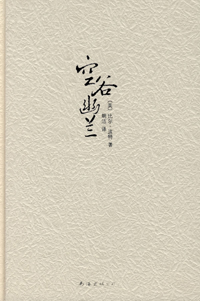 空谷幽兰
[美] 比尔·波特 著
明洁 译
南海出版公司